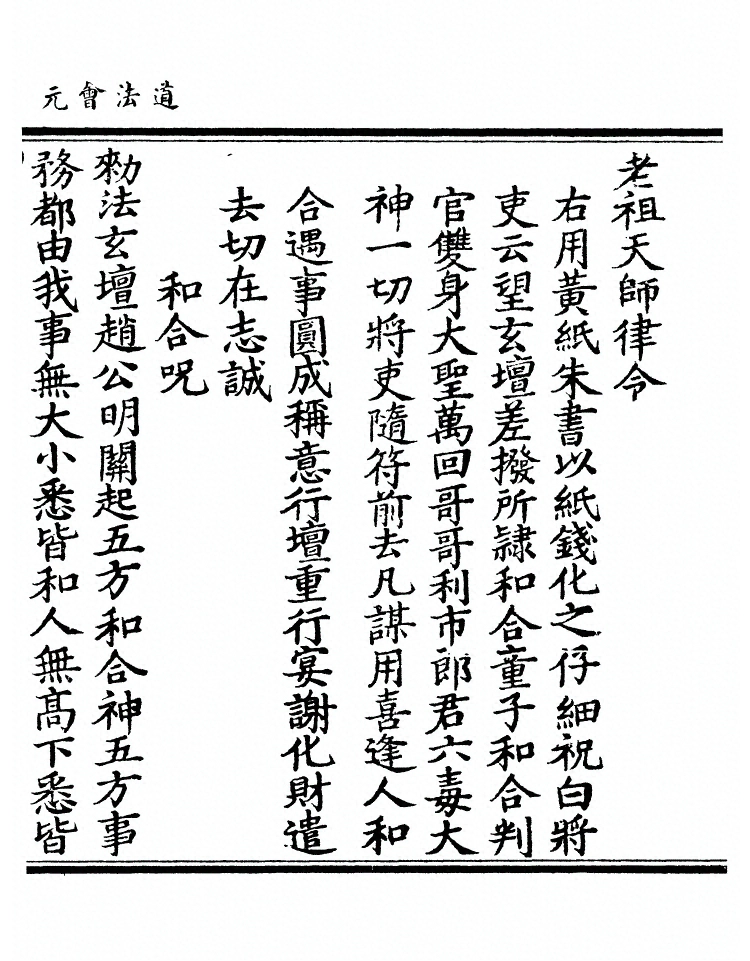 道法會元
老祖天師律令
右用黃紙朱書以紙錢化之仔細祝白將
吏云望玄壇差撥所隷和合童子和合判
官雙身大聖萬回哥哥利市郎君六毒大
神一切將吏隨符前去凡謀用喜逢人和
合遇事圓成稱意行壇重行宴謝化財遣
去切在志誠
和合呪
勑法玄壇趙公明關起五方和合神五方事
務都由我事無大小悉皆和人無髙下悉皆